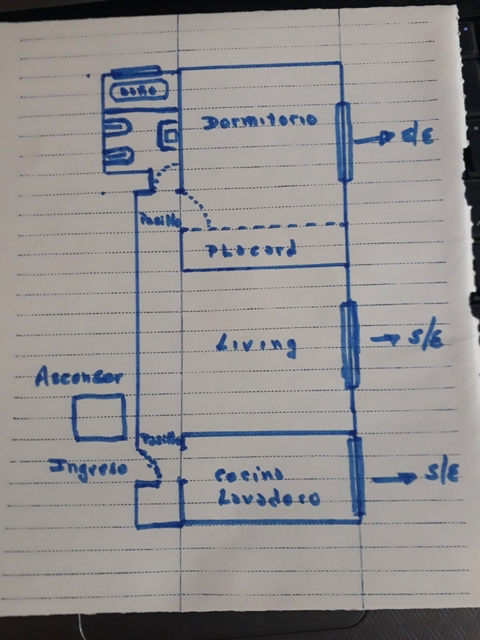 Baño
Dormitorio
Pasillo
Placard
Living
S/E
Ascensor
Pasillo
Ingreso
Cocina
Lavadero
S/E